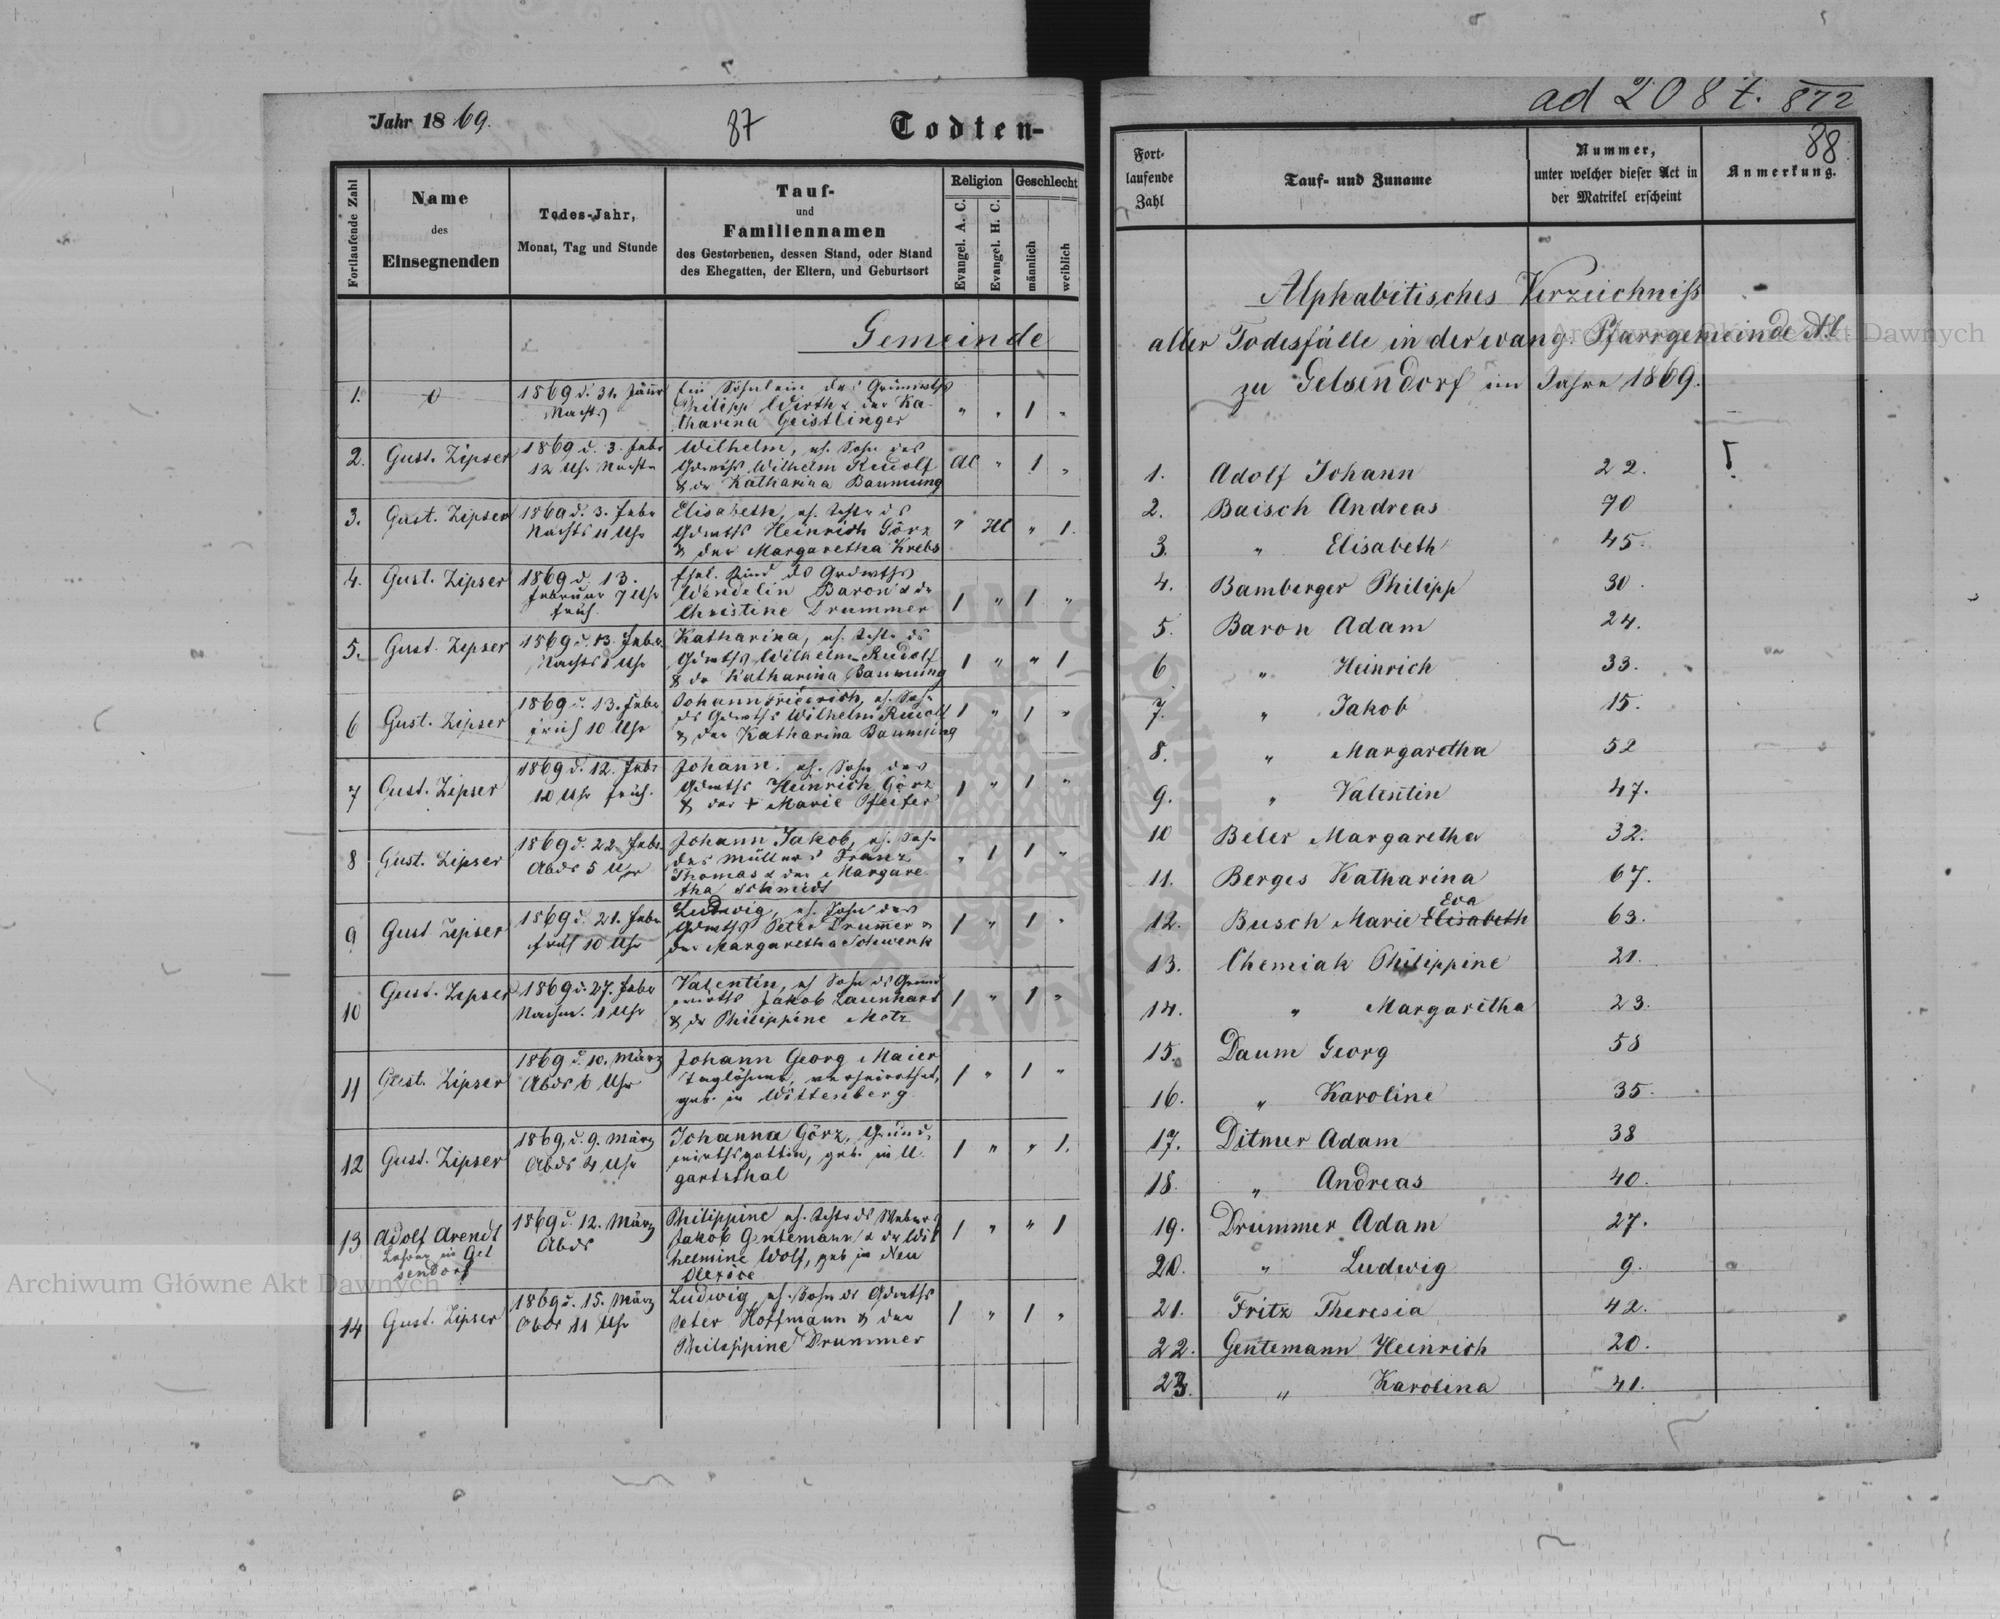 Jahr 1869.
87
Todten-
Fortlaufende Zahl
Name
des
Einsegnenden
Todes-Jahr,
Monat, Tag und Stunde
Tauf-
und
Familiennamen
des Gestorbenen, dessen Stand, oder Stand
des Ehegatten, der Eltern, und Geburtsort
Religion
Evangel. A. C.
Evangel. H. C.
Geschlecht
männlich
weiblich
Gemeinde
1. 0 1869 d. 31. Jänr Ein Söhnlein des Grundwths
Nachts Philipp Wirth & der Ka-
tharina Geistlinger " " 1 "
2. Gust. Zipser 1869 d. 3. Febr Wilhelm, eh. Sohn des
12 Uhr Nachts Gdwths Wilhelm Rudolf AC " 1 "
& dr Katharina Baumung
3. Gust. Zipser 1869 d. 3. Febr Elisabeth, eh. Tochtr ds
Nachts 11 Uhr Gdwths Heinrich Görz " HC " 1.
& der Margaretha Krebs
4. Gust. Zipser 1869 d. 13. Ehel. Kind ds Grdwths
Februar 7 Uhr Wendelin Baron & dr
früh. Christine Drummer 1 " 1 "
5. Gust. Zipser 1869 d. 13. Febr. Katharina, eh. Tochtr ds
Nachts 1 Uhr Gdwths Wilhelm Rudolf 1 " " 1
& dr Katharina Baumung
6 Gust. Zipser 1869 d. 13. Febr Johann Friedrich, eh. Sohn
früh 10 Uhr ds Gdwths Wilhelm Rudolf 1 " 1 "
& der Katharina Baumung
7 Gust. Zipser 1869 d. 12. Febr Johann, eh. Sohn des
10 Uhr früh. Gdwths Heinrich Görz 1 " 1 "
& der + Marie Pfeifer
8 Gust. Zipser 1869 d. 22. Febr. Johann Jakob, eh. Sohn
Abds 5 Uhr des Müllers Franz " 1 1 "
Thomas & der Margare-
tha Schmidt
9 Gust Zipser 1869 d. 21. Febr Ludwig, eh. Sohn des
früh 10 Uhr Gdwths Peter Drum̄er & 1 " 1 "
der Margaretha Schwenk
10 Gust. Zipser 1869 d. 27. Febr Valentin, eh Sohn ds Grund
Nachm. 1 Uhr wirths Jakob Launhart 1 " 1 "
& dr Philippine Motz
11 Gust. Zipser 1869 d. 10. März Johann Georg Maier
Abds 6 Uhr Taglöhner, verheirathet, 1 " 1 "
geb. in Wittenberg
12 Gust. Zipser 1869, d. 9. März Johanna Görz, Grund,
Abds 4 Uhr wirthsgattin, geb. in U. 1 " " 1.
gartsthal
13 Adolf Arendt 1869 d. 12. März Philippine eh. Tochtr ds Webers
Lehrer in Gel Abds Jakob Gentemann & dr Wil 1 " " 1
sendorf helmine Wolf, geb. in Neu
Olexice
14 Gust. Zipser 1869 d. 15. März Ludwig, eh. Sohn ds Gdwths
Abds 11 Uhr Peter Hoffmann & der 1 " 1 "
Philippine Drummer
ad 2087. 872
88
Fort-
laufende
Zahl
Tauf- und Zuname
Nummer,
unter welcher dieser Act in
der Matrikel erscheint
Anmerkung.
Alphabetisches Verzeichniss
aller Todesfälle in der evang. Pfarrgemeinde AC
zu Gelsendorf im Jahre 1869.
1. Adolf Johann 22.
2. Baisch Andreas 70
3. " Elisabeth 45.
4. Bamberger Philipp 30.
5. Baron Adam 24.
6 " Heinrich 33.
7. " Jakob 15.
8. " Margaretha 52
9. " Valentin 47.
10 Beler Margaretha 32.
11. Berges Katharina 67.
Eva
12. Busch Marie Elisabeth 63.
13. Chemiak Philippine 21.
14. " Margaretha 23.
15. Daum Georg 58
16. " Karoline 35.
17. Ditmer Adam 38
18. " Andreas 40.
19. Drummer Adam 27.
20. " Ludwig 9.
21. Fritz Theresia 42.
22. Gentemann Heinrich 20.
23. " Karolina 41.
Archiwum Główne Akt Dawnych
Archiwum Główne Akt Dawnych